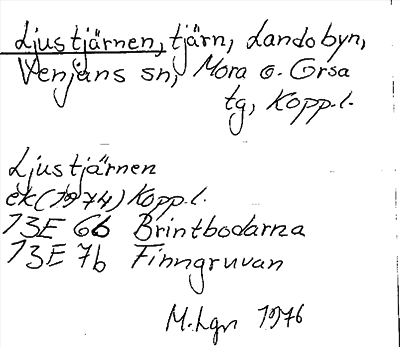 Ljustjärnen, tjärn, Landobyn,
Venjans sn, Mora o. Orsa
tg, Kopp.l.
Ljustjärnen
ek (1974) Kopp.l.
13E 6b Brintbodarna
13E 7b Finngruvan
M.Lgn 1976